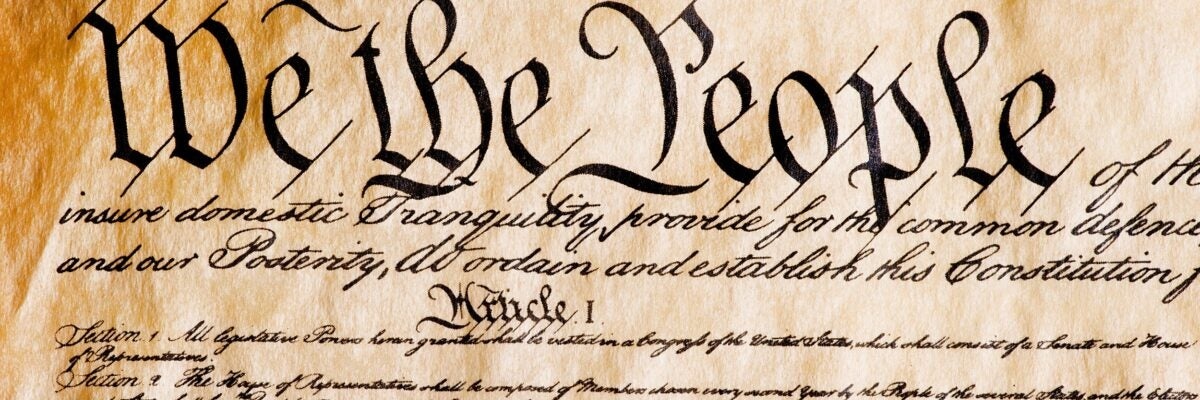 We the People of th
insure domestic Tranquility, provide for the common defence
and our Posterity, do ordain and establish this Constitution f
Article. I
Section. 1. All legislative Powers herein granted shall be vested in a Congreſs of the United States, which shall consist of a Senate and House
of Representatives.
Section 2 The House of Representatives shall be composed of Members chosen every second Year by the People of the several States, and the Electors